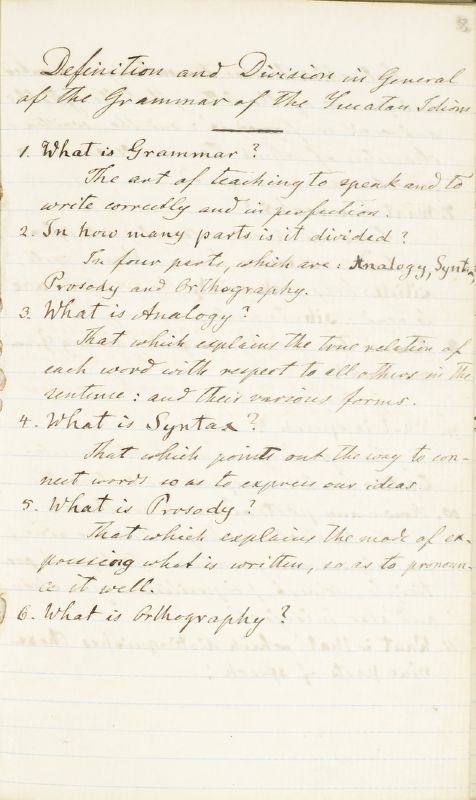 Definition and Division in General
of the Grammar of the Yucatan Idiom
1. What is Grammar?
The art of teaching to speak and to
write correctly and in perfection.
2. In how many parts is it divided?
In four parts, which are: Analogy, Syntax,
Prosody and Orthography.
3. What is Analogy?
That which explains the true relation of
each word with respect to all others in the
sentence: and their various forms.
4. What is Syntax?
That which points out the way to con-
nect words so as to express our ideas
5. What is Prosody?
That which explains the mode of ex-
pressing what is written, so as to pronoun-
ce it well.
6. What is Orthography?